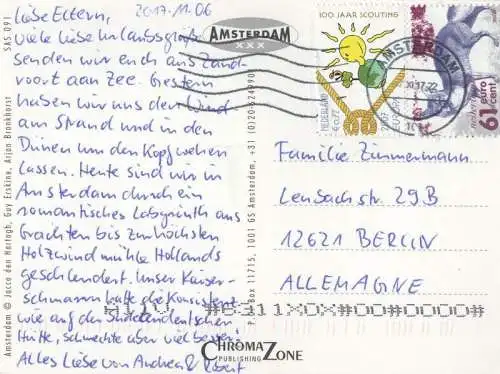 Liebe Eltern, 2017-11-06
viele liebe Urlaubsgrüße
senden wir euch aus Zand-
voort aan Zee. Gestern
haben wir uns den Wind
am Strand und in den
Dünen um den Kopf wehen
lassen. Heute sind wir in
Amsterdam durch ein
romantisches Labyrinth aus
Grachten bis zur höchsten
Holzwindmühle Hollands
geschlendert. Unser Kaiser-
schmarrn hatte die Konsistenz
wie auf den Südtiroler
Hütte, schmeckte aber viel besser!
Alles Liebe von Andrea & Robert
AMSTERDAM
XXX
100 JAAR SCOUTING
NEDERLAND
2007
EUROPA
AMSTERDAM
61 euro
cent
Familie Zimmermann
Lensbachstr. 29B
12621 BERLIN
ALLEMAGNE
SAS 091
Amsterdam © Jacco den Hartogh, Guy Erskine, Arjan Bronkhorst
Box 11715, 1001 GS Amsterdam, +31 (0)20-6249901
CHROMA ZONE
PUBLISHING